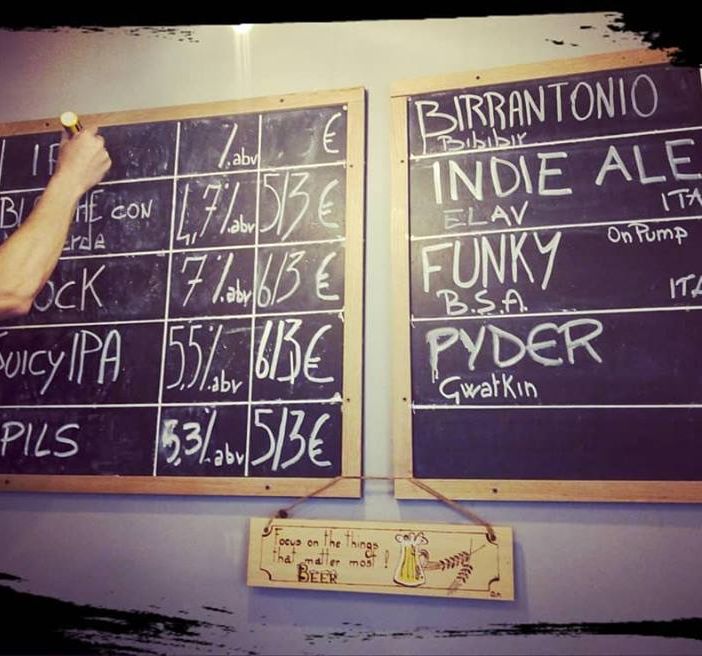 %.abv €
CON
4,7%.abv 5/3 €
OCK 7%.abv 6/3 €
JUICY IPA 5,5%.abv 6/3 €
PILS 5,3%.abv 5/3 €
BIRRANTONIO
Bibibir
INDIE ALE
ELAV ITA
FUNKY OnPump
B.S.A. ITA
PYDER
Gwatkin
Focus on the things
that matter most !
BEER